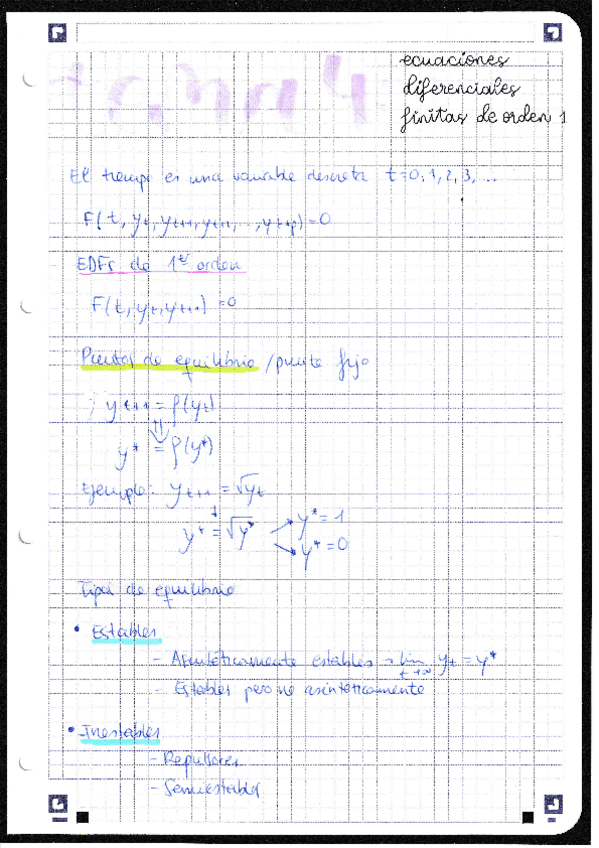 Tema 4
ecuaciones
diferenciales
finitas de orden 1
El tiempo es una variable discreta t=0, 1, 2, 3, ...
F(t, yt, yt+1, yt+1, ..., yt+p) = 0
EDFs de 1er orden
F(t, yt, yt+1) = 0
Puntos de equilibrio / punto fijo
yt+1 = f(yt)
⇓
y* = f(y*)
Ejemplo: yt+1 = √yt
↓
y* = √y* → y* = 1
→ y* = 0
Tipos de equilibrio
• Estables
- Asintóticamente estables → lim t→∞ yt = y*
- Estables pero no asintóticamente
• Inestables
- Repulsores
- Semiestables